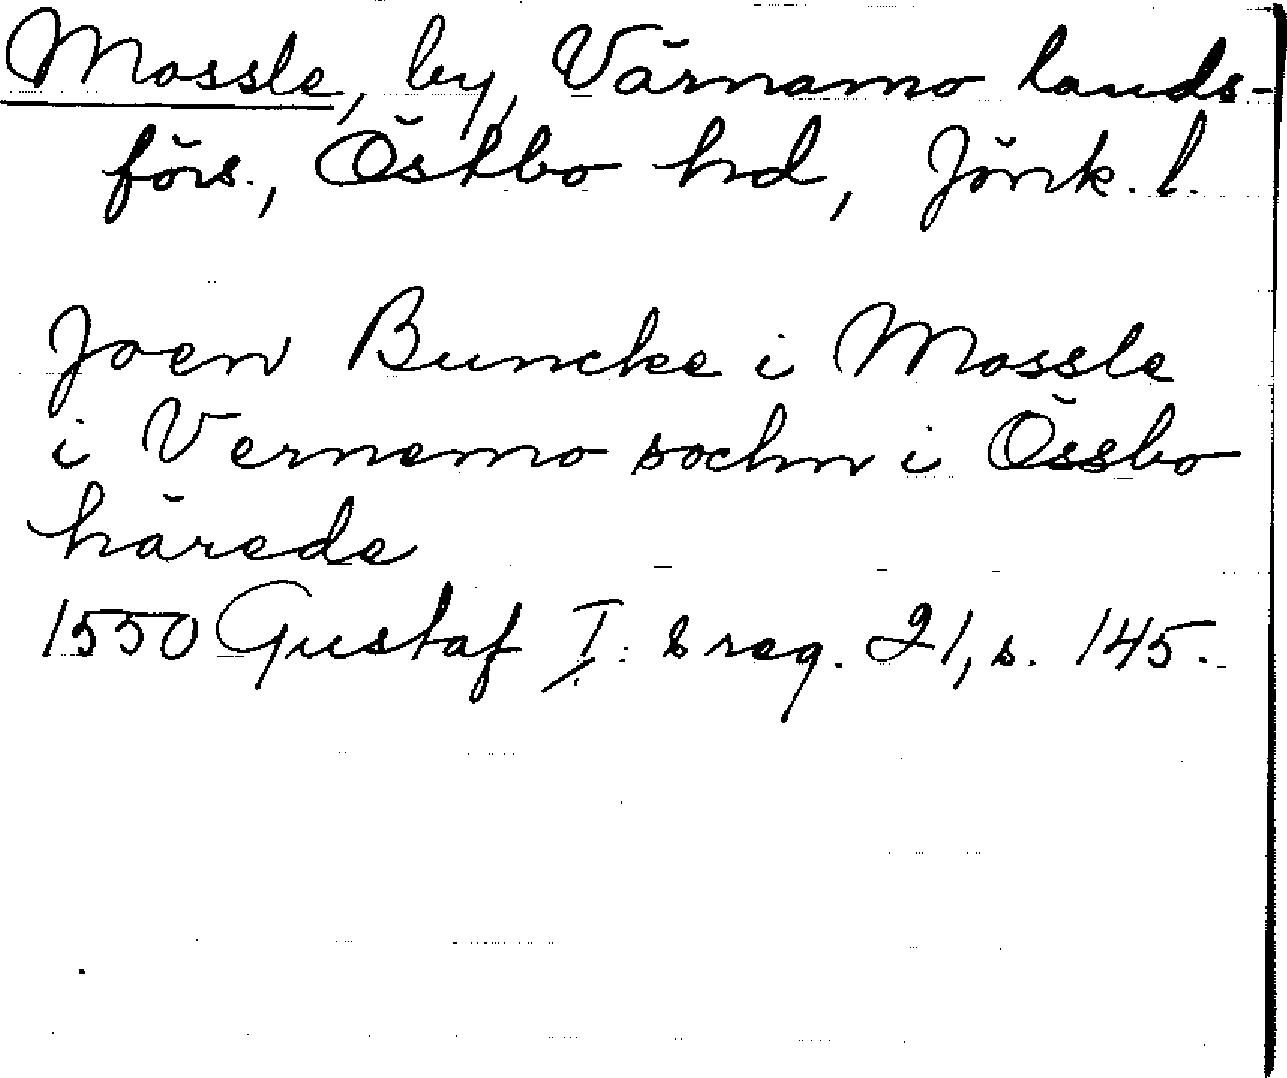 Mossle, by, Värnamo lands-
förs., Östbo hd, Jönk. l.
Joen Buncke i Mossle
i Vernemo sochn i Össbo
härede
1550 Gustaf I:s reg. 21, s. 145.